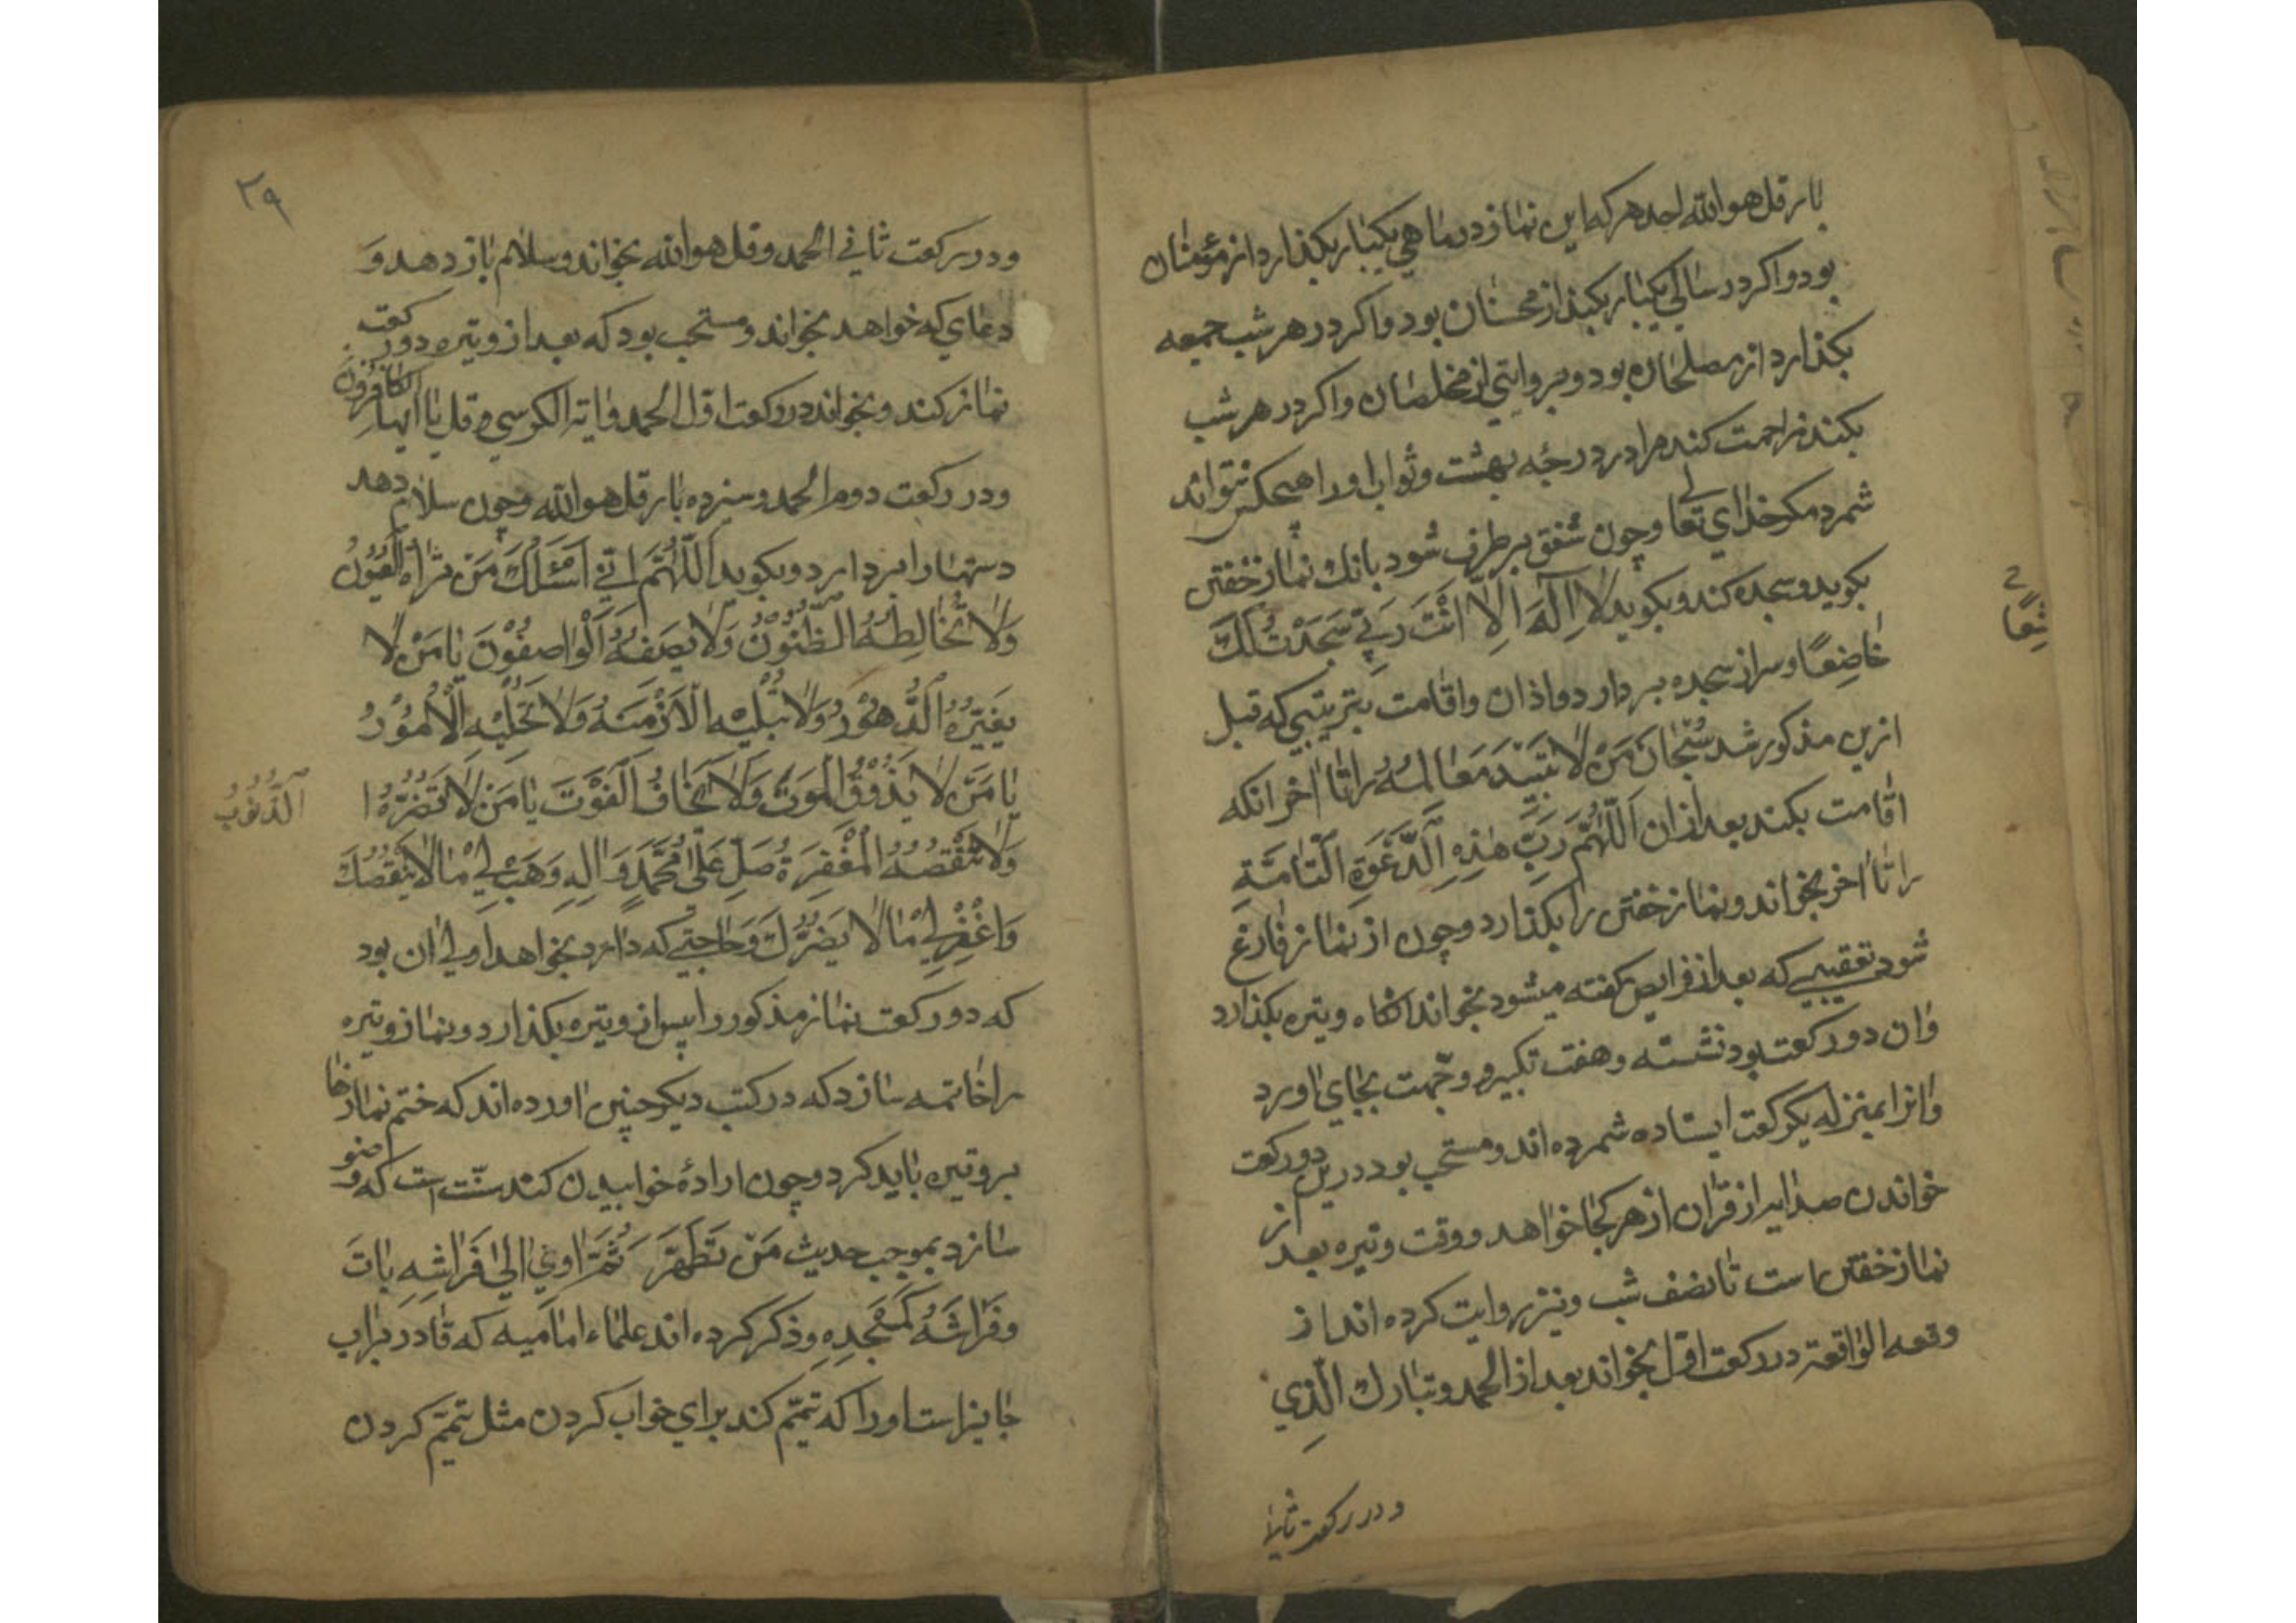 بار قل هو الله احد هر که این نماز در ماهی یکبار بکذارد از مؤمنان
بود و اکر در سالی یکبار بکند از محسنان بود و اکر در هر شب جمعه
بکذارد از مصلحان بود و بروایتی از مخلصان و اکر در هر شب
بکند مزاحمت کند مرا در درجۀ بهشت و ثواب او را هیچکس نتواند
شمرد مکر خدای تعالی و چون شفق برطرف شود بانك نماز خفتن
بکوید و سجده کند و بکوید لا اِلٰهَ اِلاّ اَنْتَ رَبّی سَجَدْتُ لَكَ
خاضِعًا و سر از سجده بردارد و اذان و اقامت بترتیبی که قبل
ازین مذکور شد سُبْحانَ مَنْ لا تَبیدُ مَعالِمُهُ را تا اخر انکه
اقامت بکند بعد از ان اَللّهُمَّ رَبَّ هٰذِهِ الَدَّعْوَةِ الَتّامَّةِ
را تا اخر بخواند و نماز خفتن را بکذارد و چون از نماز فارغ
شود تعقیبی که بعد از فرایض کفته میشود بخواند انکاه وتیره بکذارد
و ان دو رکعت بود نشسته و هفت تکبیر و وجّهت بجای اورد
و انرا بمنزله یکرکعت ایستاده شمرده اند و مستحب بود درین دو رکعت
خواندن صد ایه از قران از هر کجا خواهد و وقت وتیره بعد از
نماز خفتن است تا نصف شب و نیز روایت کرده اند از
وقعه الواقعة در رکعت اول بخواند بعد از الحمد و تبارك الّذِی
و در رکعت ثانی
ثِعًا
۲۹
و در رکعت ثانی الحمد و قل هو الله بخواند و سلام باز دهد وَ
دعای که خواهد بخواند و مستحب بود که بعد از وتیره دو رکعت
نماز کند و بخواند در رکعت اول الحمد و ایة الکرسی و قل یا ایها الکافرون
و در رکعت دوم الحمد و سیزده بار قل هو الله و چون سلام دهد
دستها را بردارد و بکوید اَللّهُمَّ اِنّی اَسْئَلُكَ مَنْ تَراهُ الْعُیُونُ
وَلا تُخالِطُهُ الظُّنُوْنُ وَلا یَصِفُهُ اَلْواصِفُوْنَ یا مَنْ لا
یُغَیِّرُهُ الَدُّهُوْرُ وَلا تُبْلیْهِ الَازْمِنَهُ وَلا تُحیْلُهِ الْاُمُوْرُ
یا مَنْ لا یَذُوْقُ الْمَوتَ وَلا یَخافُ اَلْفَوْتَ یا مَنْ لا تَضُرُّهُ ا
الَذُّنُوْبُ
وَلا تَنْقُصُهُ الْمَغْفِرَةُ صَلِّ عَلیٰ مُحَمَّدٍ وَالِهِ وَهَبْ لیْ مالا یَنْقُصُكَ
وَاغْفِرْ لِیْ مالا یَضُرُّكَ وَحاجتی که دارد بخواهد اولی ان بود
که دو رکعت نماز مذکور را پیش از وتیره بکذارد و نماز وتیره
را خاتمه سازد که در کتب دیکر چنین اورده اند که ختم نمازها
بر وتیره باید کرد و چون ارادۀ خوابیدن کند سنّت است که وضو
سازد بموجب حدیث مَنْ تَطَهَّرَ ثُمَّ اوی اِلیٰ فِراشِهِ باتَ
وَ فَراشُهُ کَمَسْجِدِهِ و ذکر کرده اند علماء امامیه که قادر بر اب
جایز است او را که تیمّم کند برای خواب کردن مثل تیمّم کردن